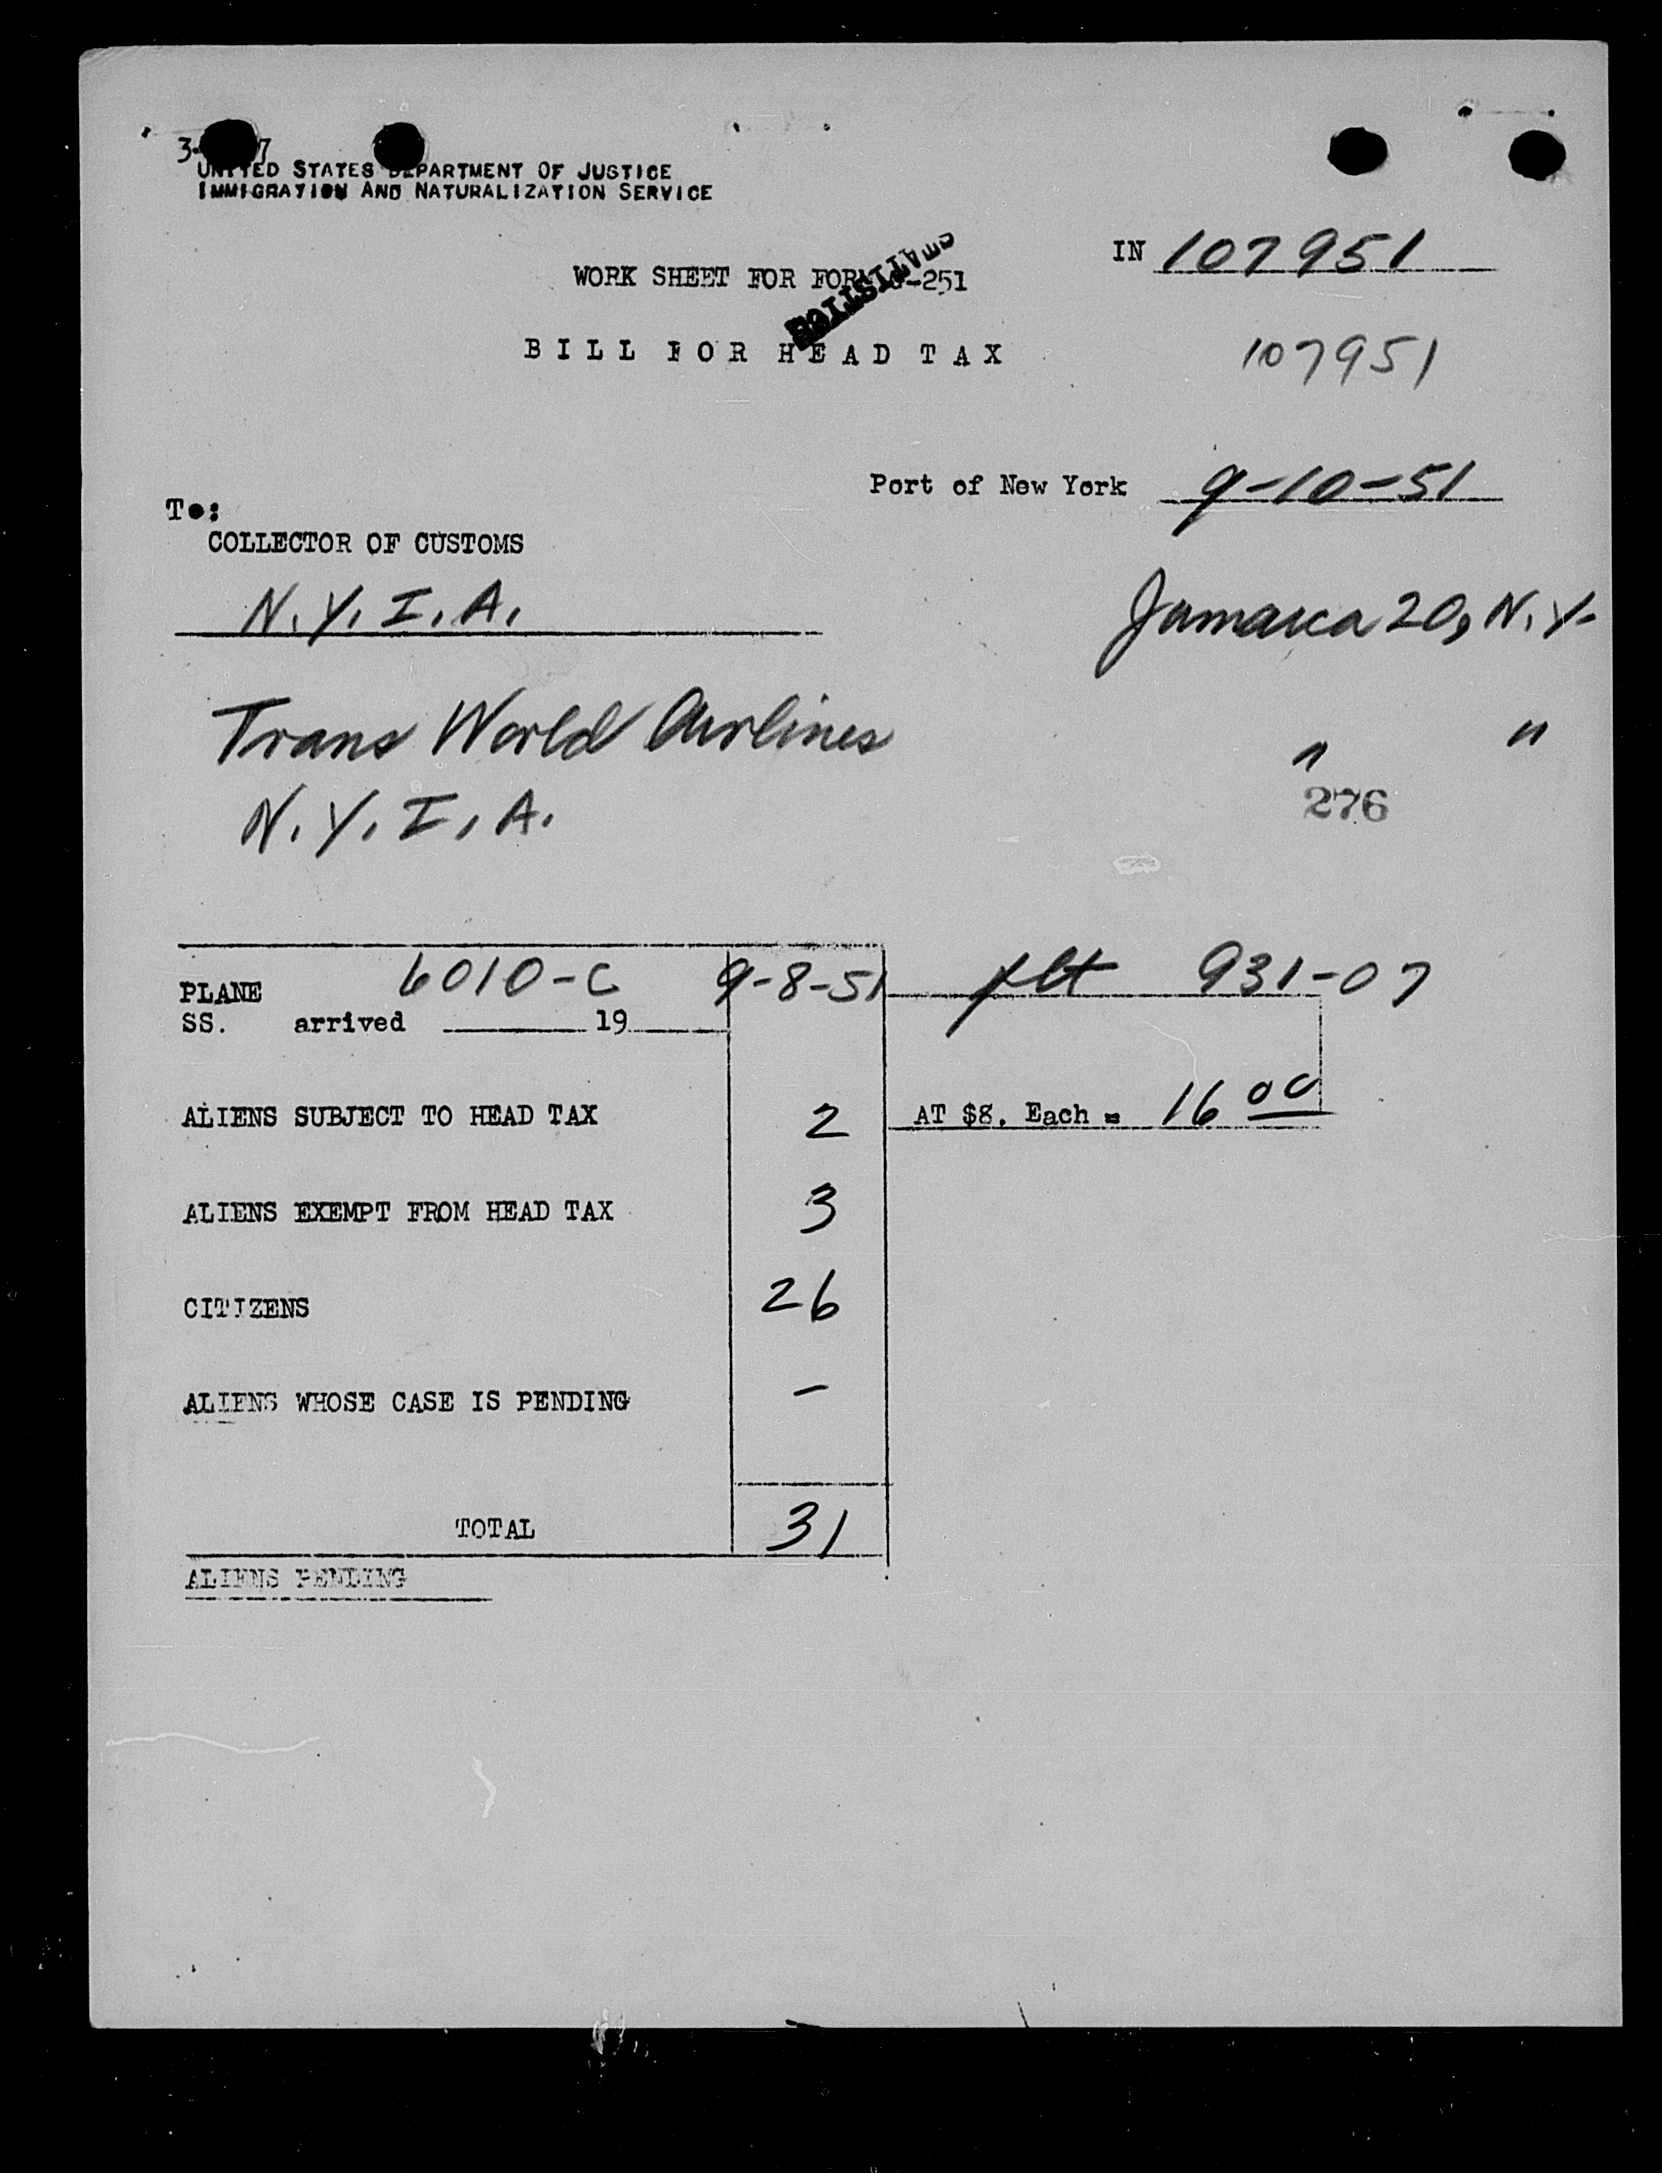 UNITED STATES DEPARTMENT OF JUSTICE
IMMIGRATION AND NATURALIZATION SERVICE
IN 107951
WORK SHEET FOR FORM G-251
STATISTICS
BILL FOR HEAD TAX
107951
Port of New York 9-10-51
To:
COLLECTOR OF CUSTOMS
N.Y.I.A. Jamaica 20, N.Y.
Trans World Airlines " "
276
N.Y.I.A.
PLANE 6010-C 9-8-51 flt 931-07
SS. arrived 19
ALIENS SUBJECT TO HEAD TAX 2 AT $8. Each = 16 00
ALIENS EXEMPT FROM HEAD TAX 3
CITIZENS 26
ALIENS WHOSE CASE IS PENDING –
TOTAL 31
ALIENS PENDING